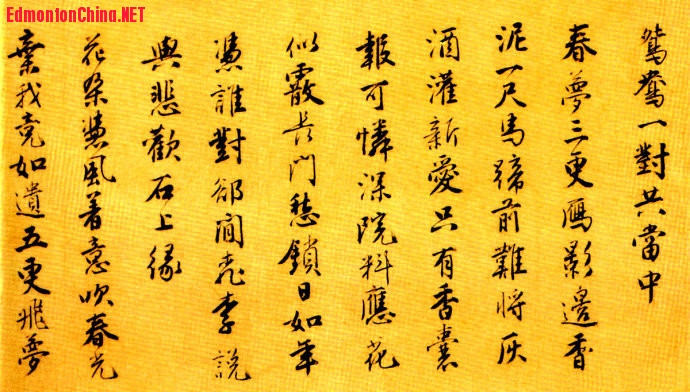 EdmontonChina.NET
鴛鴦一對共當中
春夢三更鴈影邊香
泥一尺馬蹄前難將灰
酒灌新愛只有香囊
報可憐深院料應花
似霰長門愁鎖日如年
憑誰對卻閒桃李說
與悲歡石上緣
花朵風着意吹春光
棄我竟如遺五更飛夢